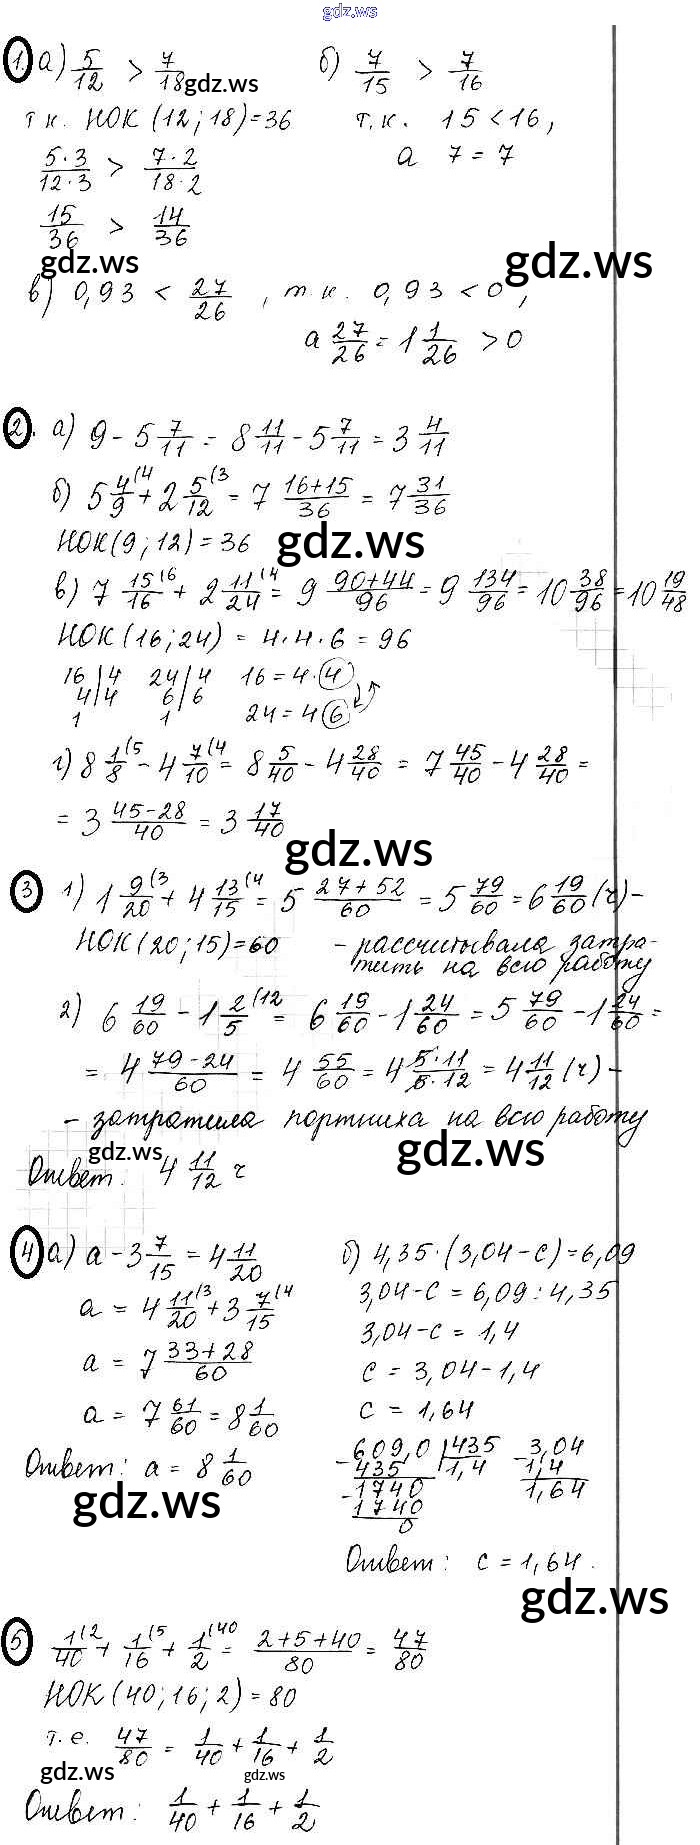 gdz.ws
1. а) 5/12 > 7/18 gdz.ws б) 7/15 > 7/16
т.к. НОК (12; 18) = 36 т.к. 15 < 16,
5·3/12·3 > 7·2/18·2 а 7 = 7
15/36 > 14/36
gdz.ws gdz.ws
в) 0,93 < 27/26, т.к. 0,93 < 0,
а 27/26 = 1 1/26 > 0
2. а) 9 - 5 7/11 = 8 11/11 - 5 7/11 = 3 4/11
б) 5 4/9 (4 + 2 5/12 (3 = 7 16+15/36 = 7 31/36
НОК (9; 12) = 36 gdz.ws
в) 7 15/16 (6 + 2 11/24 (4 = 9 90+44/96 = 9 134/96 = 10 38/96 = 10 19/48
НОК (16; 24) = 4·4·6 = 96
16|4 24|4 16 = 4·4
4|4 6|6 24 = 4·6
1 1
г) 8 1/8 (5 - 4 7/10 (4 = 8 5/40 - 4 28/40 = 7 45/40 - 4 28/40 =
= 3 45-28/40 = 3 17/40 gdz.ws
3 1) 1 9/20 (3 + 4 13/15 (4 = 5 27+52/60 = 5 79/60 = 6 19/60 (ч) -
НОК (20; 15) = 60 - рассчитывала затра-
тить на всю работу
2) 6 19/60 - 1 2/5 (12 = 6 19/60 - 1 24/60 = 5 79/60 - 1 24/60 =
= 4 79-24/60 = 4 55/60 = 4 5·11/5·12 = 4 11/12 (ч) -
- затратила портниха на всю работу
gdz.ws gdz.ws
Ответ: 4 11/12 ч
4 а) a - 3 7/15 = 4 11/20 б) 4,35·(3,04 - c) = 6,09
a = 4 11/20 (3 + 3 7/15 (4 3,04 - c = 6,09 : 4,35
a = 7 33+28/60 3,04 - c = 1,4
c = 3,04 - 1,4
a = 7 61/60 = 8 1/60 c = 1,64
Ответ: a = 8 1/60 - 609,0|435 - 3,04
gdz.ws 435 1,4 1,4
- 1740 1,64
1740
0
Ответ: c = 1,64.
gdz.ws
5 1/40 (2 + 1/16 (5 + 1/2 (40 = 2+5+40/80 = 47/80
НОК (40; 16; 2) = 80
т.е. 47/80 = 1/40 + 1/16 + 1/2
gdz.ws gdz.ws
Ответ: 1/40 + 1/16 + 1/2